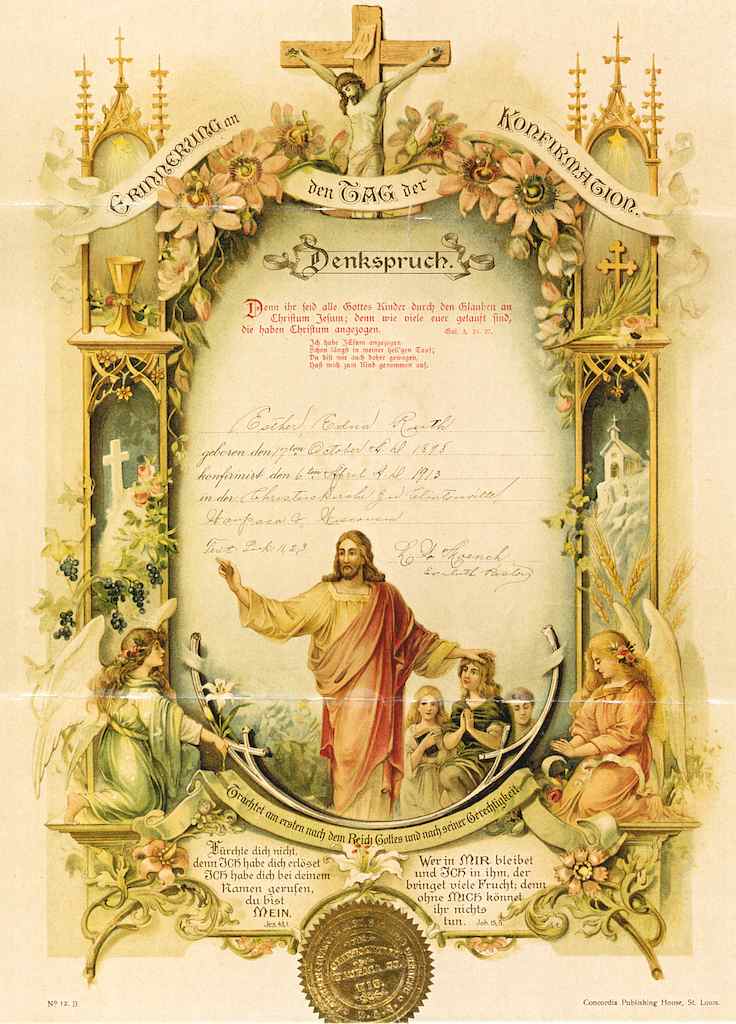 ERINNERUNG an
den TAG der
KONFIRMATION.
Denkspruch.
Denn ihr seid alle Gottes Kinder durch den Glauben an
Christum Jesum; denn wie viele euer getauft sind,
die haben Christum angezogen. Gal. 3, 26. 27.
Ich habe JEsum angezogen
Schon längst in meiner heil'gen Tauf;
Du bist mir auch daher gewogen,
Hast mich zum Kind genommen auf.
Esther Edna Ruth
geboren den 17ten October A D 1898
konfirmirt den 6ten April A D 1913
in der Christuskirche zu Clintonville
Waupaca Co Wisconsin
Text Luk 11, 28
Pastor
Trachtet am ersten nach dem Reich Gottes und nach seiner Gerechtigkeit.
Fürchte dich nicht,
denn ICH habe dich erlöset
ICH habe dich bei deinem
Namen gerufen,
du bist
MEIN.
Jes. 43,1.
Wer in MIR bleibet
und ICH in ihm, der
bringet viele Frucht; denn
ohne MICH könnet
ihr nichts
tun. Joh. 15,5.
No 12. D.
Concordia Publishing House, St. Louis.